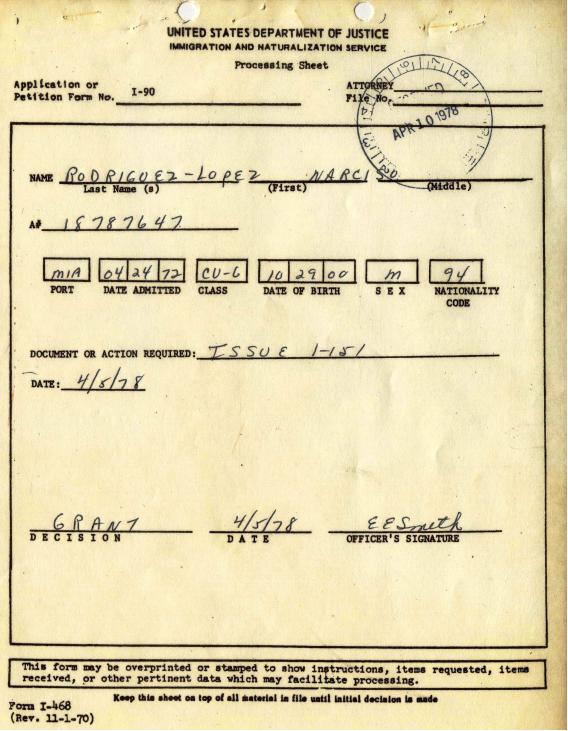 UNITED STATES DEPARTMENT OF JUSTICE
IMMIGRATION AND NATURALIZATION SERVICE
Processing Sheet
Application or
Petition Form No. I-90
ATTORNEY
File No.
APR 10 1978
NAME RODRIGUEZ-LOPEZ NARCISO
Last Name (s) (First) (Middle)
A# 18787647
MIA 04 24 72 CU-6 10 29 00 M 94
PORT DATE ADMITTED CLASS DATE OF BIRTH SEX NATIONALITY
CODE
DOCUMENT OR ACTION REQUIRED: ISSUE I-151
DATE: 4/5/78
GRANT 4/5/78 EESmith
DECISION DATE OFFICER'S SIGNATURE
This form may be overprinted or stamped to show instructions, items requested, items
received, or other pertinent data which may facilitate processing.
Keep this sheet on top of all material in file until initial decision is made
Form I-468
(Rev. 11-1-70)